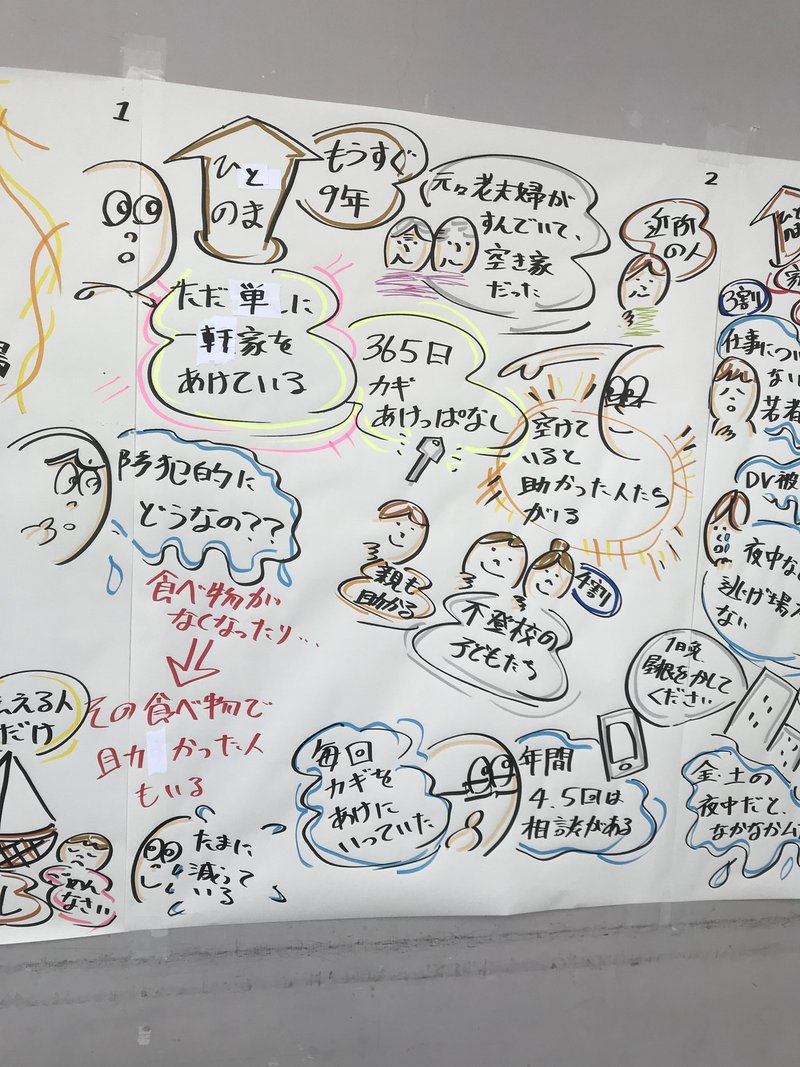 1
ひと
のま
もうすぐ
9年
元々老夫婦が
すんでいて、
空き家
だった
近所
の人
ただ単に
一軒家を
あけている
365日
カギ
あけっぱなし
空けて
いると
助かった人たち
がいる
防犯的に
どうなの??
食べ物が
なくなったり…
その食べ物で
助かった人
もいる
たまに
減って
いる
親も
助かる
4割
不登校の
子どもたち
毎回
カギを
あけに
いっていた
年間
4.5回は
相談がある
1晩
屋根をかして
ください
2
3割
仕事につい
ない
若者
DV被
夜中な
逃げ場
ない
金・土の
夜中だと、
なかなか
える人
だけ
ごめん
なさい
し